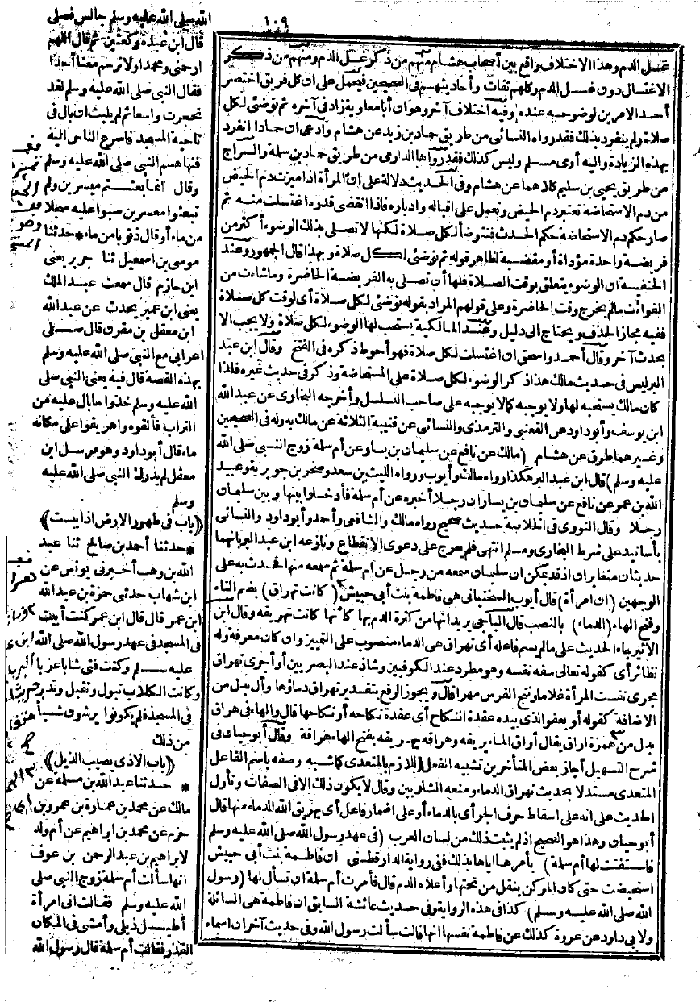 ١٠٩
غسل الدم وهذا الاختلاف واقع بين أصحاب هشام منهم من ذكر غسل الدم ومنهم من ذكر
الاغتسال دون غسل الدم وكلهم ثقات وأحاديثهم في الصحيحين فيحمل على ان كل فريق اختصر
أحد الامرين لوضوحه عنده وفيه اختلاف آخر وهو ان أبا معاوية زاد في آخره ثم توضئى لكل
صلاة ولم ينفرد بذلك فقد رواه النسائى من طريق حماد بن زيد عن هشام وادعى ان حمادا انفرد
بهذه الزيادة واليه أومى مسلم وليس كذلك فقد رواها الدارمى من طريق حماد بن سلمة والسراج
من طريق يحيى بن سليم كلاهما عن هشام وفى الحديث دلالة على ان المرأة اذا ميزت دم الحيض
من دم الاستحاضة تعتبر دم الحيض وتعمل على اقباله وادباره فاذا انقضى قدره اغتسلت منه ثم
صار حكم دم الاستحاضة حكم الحدث فتتوضأ لكل صلاة لكنها لا تصلى بذلك الوضوء أكثر من
فريضة واحدة مؤداة أو مقضية لظاهر قوله ثم توضئى لكل صلاة وبهذا قال الجمهور وعند
الحنفية ان الوضوء يتعلق بوقت الصلاة فلها أن تصلى به الفريضة الحاضرة وما شاءت من
الفوائت ما لم يخرج وقت الحاضرة وعلى قولهم المراد بقوله توضئى لكل صلاة أى لوقت كل صلاة
ففيه مجاز الحذف ويحتاج الى دليل وعند المالكية يستحب لها الوضوء لكل صلاة ولا يجب الا
بحدث آخر وقال أحمد واسحق ان اغتسلت لكل صلاة فهو أحوط ذكره فى الفتح وقال ابن عبد
البر ليس فى حديث مالك هذا ذكر الوضوء لكل صلاة على المستحاضة وذكر فى حديث غيره فلذا
كان مالك يستحبه لها ولا يوجبه كما لا يوجبه على صاحب السلس وأخرجه البخارى عن عبد الله
ابن يوسف وأبو داود عن القعنبى والترمذى والنسائى عن قتيبة الثلاثة عن مالك به وله فى الصحيحين
وغيرهما طرق عن هشام (مالك عن نافع عن سليمان بن يسار عن أم سلمة زوج النبى صلى الله
عليه وسلم) قال ابن عبد البر هكذا رواه مالك وأيوب ورواه الليث بن سعد وصخر بن جويرية وعبيد
الله بن عمر عن نافع عن سليمان بن يسار ان رجلا أخبره عن أم سلمة فأدخلوا بينها وبين سليمان
رجلا وقال النووى فى الخلاصة حديث صحيح رواه مالك والشافعى وأحمد وأبو داود والنسائى
بأسانيد على شرط البخارى ومسلم انتهى فلم يعرج على دعوى الانقطاع ونازعه ابن عبد البر بانهما
حديثان متغايران اذ قد يمكن ان سليمان سمعه من رجل عن أم سلمة ثم سمعه منها فحدث به على
الوجهين (ان امرأة) قال أيوب السختيانى هى فاطمة بنت أبى حبيش (كانت تهراق) بضم التاء
وفتح الهاء (الدماء) بالنصب قال الباجى يريد انها من كثرة الدم بها كأنها كانت تهريقه وقال ابن
الأثير جاء الحديث على ما لم يسم فاعله أى تهراق هى الدماء منصوب على التمييز وان كان معرفة وله
نظائر أى كقوله تعالى سفه نفسه وهو مطرد عند الكوفيين وشاذ عند البصريين أو أجرى تهراق
مجرى نفست المرأة غلاما ونتج الفرس مهرا قال ويجوز الرفع بتقدير تهراق دماؤها وأل بدل من
الاضافة كقوله أو يعفو الذى بيده عقدة النكاح أى عقدة نكاحه أو نكاحها قال والهاء فى هراق
بدل من همزة اراق يقال أراق الماء يريقه وهراقه يهريقه بفتح الهاء هراقة وقال أبو حيان فى
شرح التسهيل أجاز بعض المتأخرين تشبيه الفعل اللازم بالمتعدى كما شبه وصفه باسم الفاعل
المتعدى مستدلا بحديث تهراق الدماء ومنعه الشلوبين وقال لا يكون ذلك الا فى الصفات وتأول
الحديث على انه على اسقاط حرف الجر أى بالدماء أو على اضمار فاعل أى يهريق الله الدماء منها قال
أبو حيان وهذا هو الصحيح اذ لم يثبت ذلك من لسان العرب (فى عهد رسول الله صلى الله عليه وسلم
فاستفتت لها أم سلمة) بأمرها اياها بذلك فى رواية الدارقطنى ان فاطمة بنت أبى حبيش
استحيضت حتى كان المركن ينقل من تحتها وأعلاه الدم قال فأمرت أم سلمة ان تسأل لها (رسول
الله صلى الله عليه وسلم) كذا فى هذه الرواية وفى حديث عائشة السابق ان فاطمة هى السائلة
ولابى داود عن عروة كذلك عن فاطمة نفسها انها قالت سألت رسول الله وفى حديث آخر ان اسماء
الله صلى الله عليه وسلم جالس فصلى
قال ابن عبدة ركعتين ثم قال اللهم
ارحمنى ومحمدا ولا ترحم معنا أحدا
فقال النبى صلى الله عليه وسلم لقد
تحجرت واسعا ثم لم يلبث ان بال فى
ناحية المسجد فاسرع الناس اليه
فنهاهم النبى صلى الله عليه وسلم
وقال انما بعثتم ميسرين ولم
تبعثوا معسرين صبوا عليه سجلا
من ماء أو قال ذنوبا من ماء * حدثنا
موسى بن اسمعيل ثنا جرير يعنى
ابن حازم قال سمعت عبد الملك
يعنى ابن عمير يحدث عن عبد الله
ابن معقل بن مقرن قال صلى
اعرابى مع النبى صلى الله عليه وسلم
بهذه القصة قال فيه يعنى النبى صلى
الله عليه وسلم خذوا ما بال عليه من
التراب فالقوه واهريقوا على مكانه
ماء قال أبو داود وهو مرسل ابن
معقل لم يدرك النبى صلى الله عليه
وسلم
(باب فى طهور الارض اذا يبست)
* حدثنا أحمد بن صالح ثنا عبد
الله بن وهب أخبرنى يونس عن
ابن شهاب حدثنى حمزة بن عبد الله
ابن عمر قال قال ابن عمر كنت أبيت
فى المسجد فى عهد رسول الله صلى الله
عليه وسلم وكنت فتى شابا عزبا
وكانت الكلاب تبول وتقبل وتدبر
فى المسجد فلم يكونوا يرشون شيأ
من ذلك
(باب الاذى يصيب الذيل)
* حدثنا عبد الله بن مسلمة عن
مالك عن محمد بن عمارة بن عمرو بن
حزم عن محمد بن ابراهيم عن أم ولد
لابراهيم بن عبد الرحمن بن عوف
انها سألت أم سلمة زوج النبى صلى
الله عليه وسلم فقالت انى امرأة
أطيل ذيلى وأمشى فى المكان
القذر فقالت أم سلمة قال رسول الله